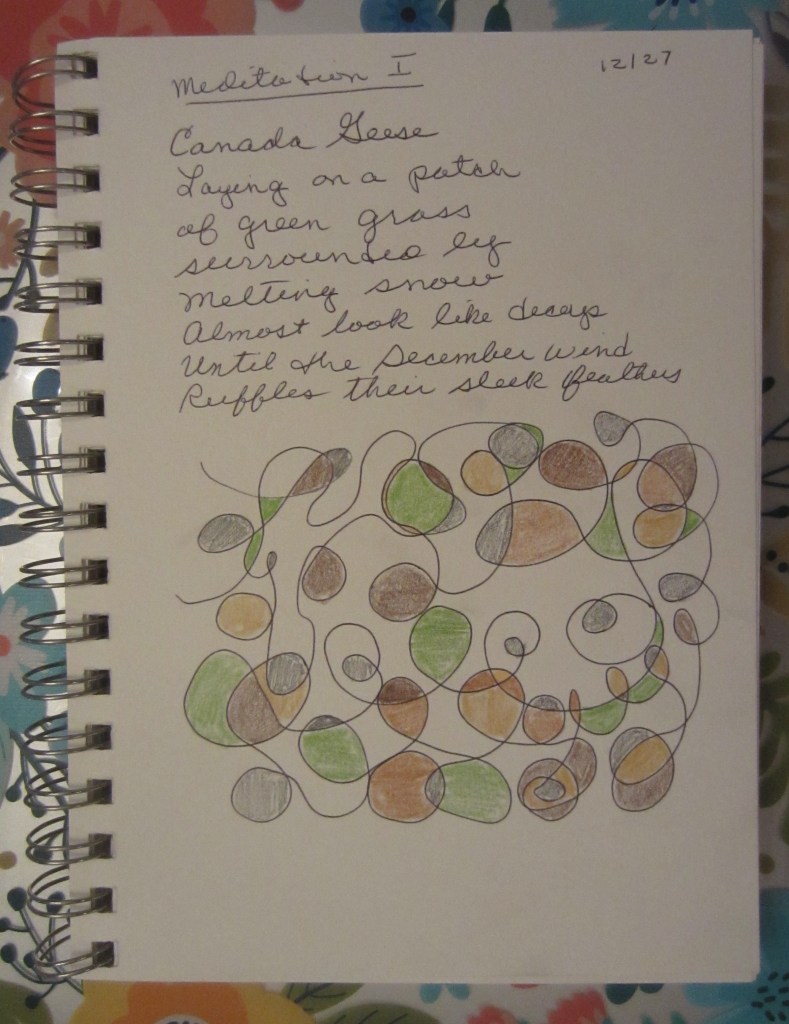 Meditation I
12/27
Canada Geese
Laying on a patch
of green grass
surrounded by
melting snow
Almost look like decoys
Until the December wind
Ruffles their sleek feathers